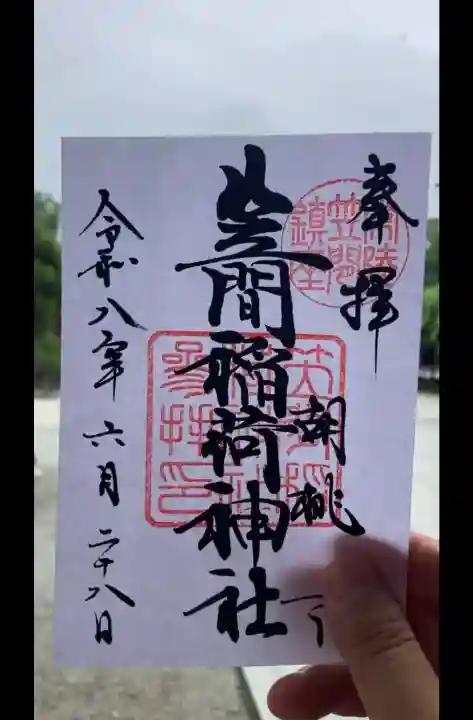 奉拝
常陸
笠間
鎮座
胡桃下
笠間稲荷神社
令和八年六月二十八日